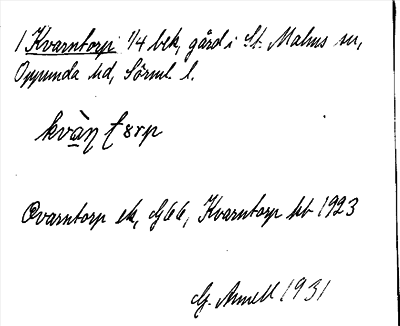 1 Kvarntorp 1/4 bek, gård i St. Malms sn,
Oppunda hd, Sörml. l.
kvàṇ ƫɞrp
Qvarntorp ek, G66, Kvarntorp kb 1923
G. Arnell 1931